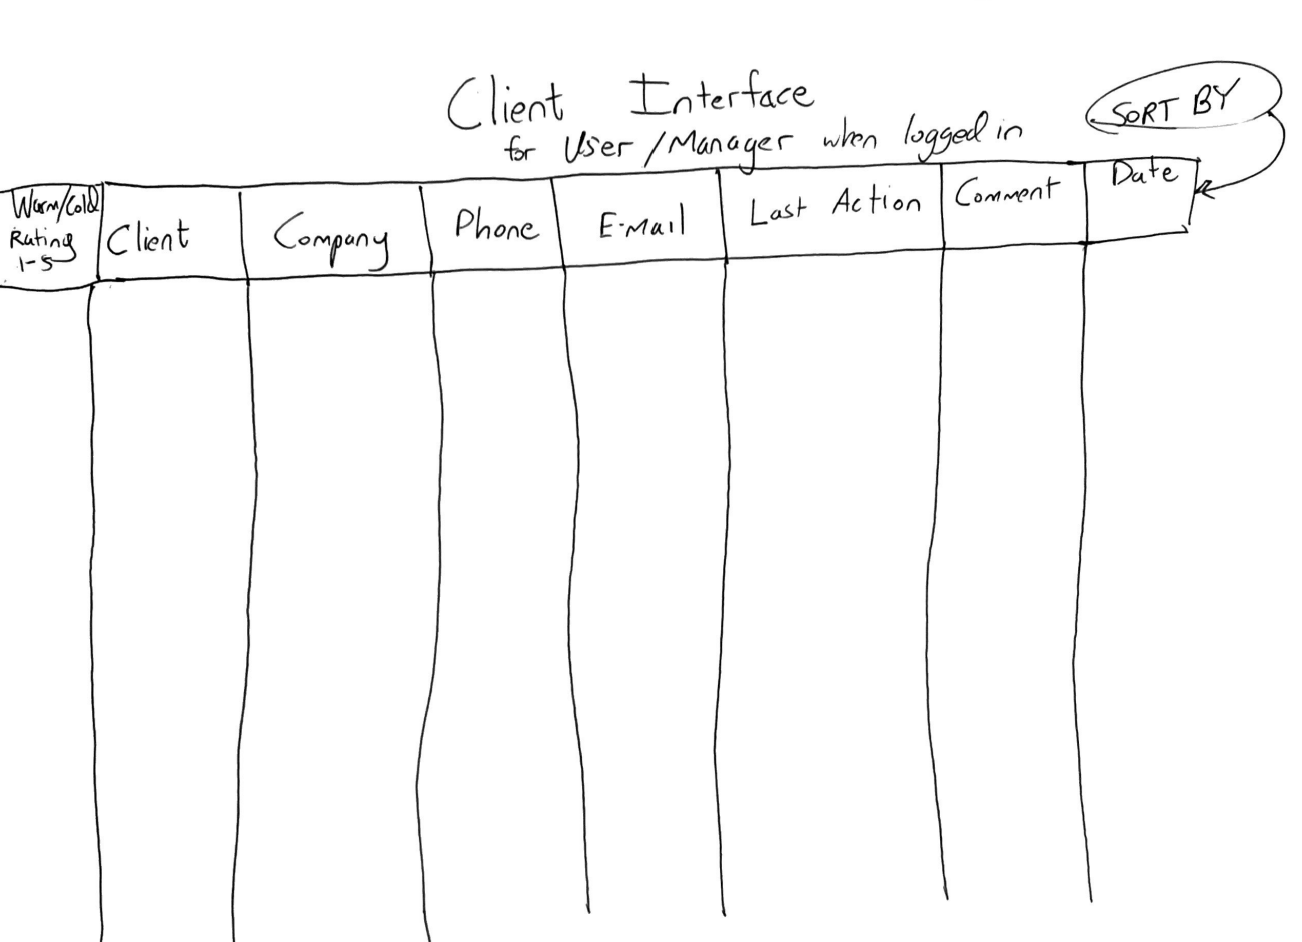 Client Interface
for User/Manager when logged in
SORT BY
Warm/Cold
Rating
1-5
Client
Company
Phone
E-Mail
Last Action
Comment
Date